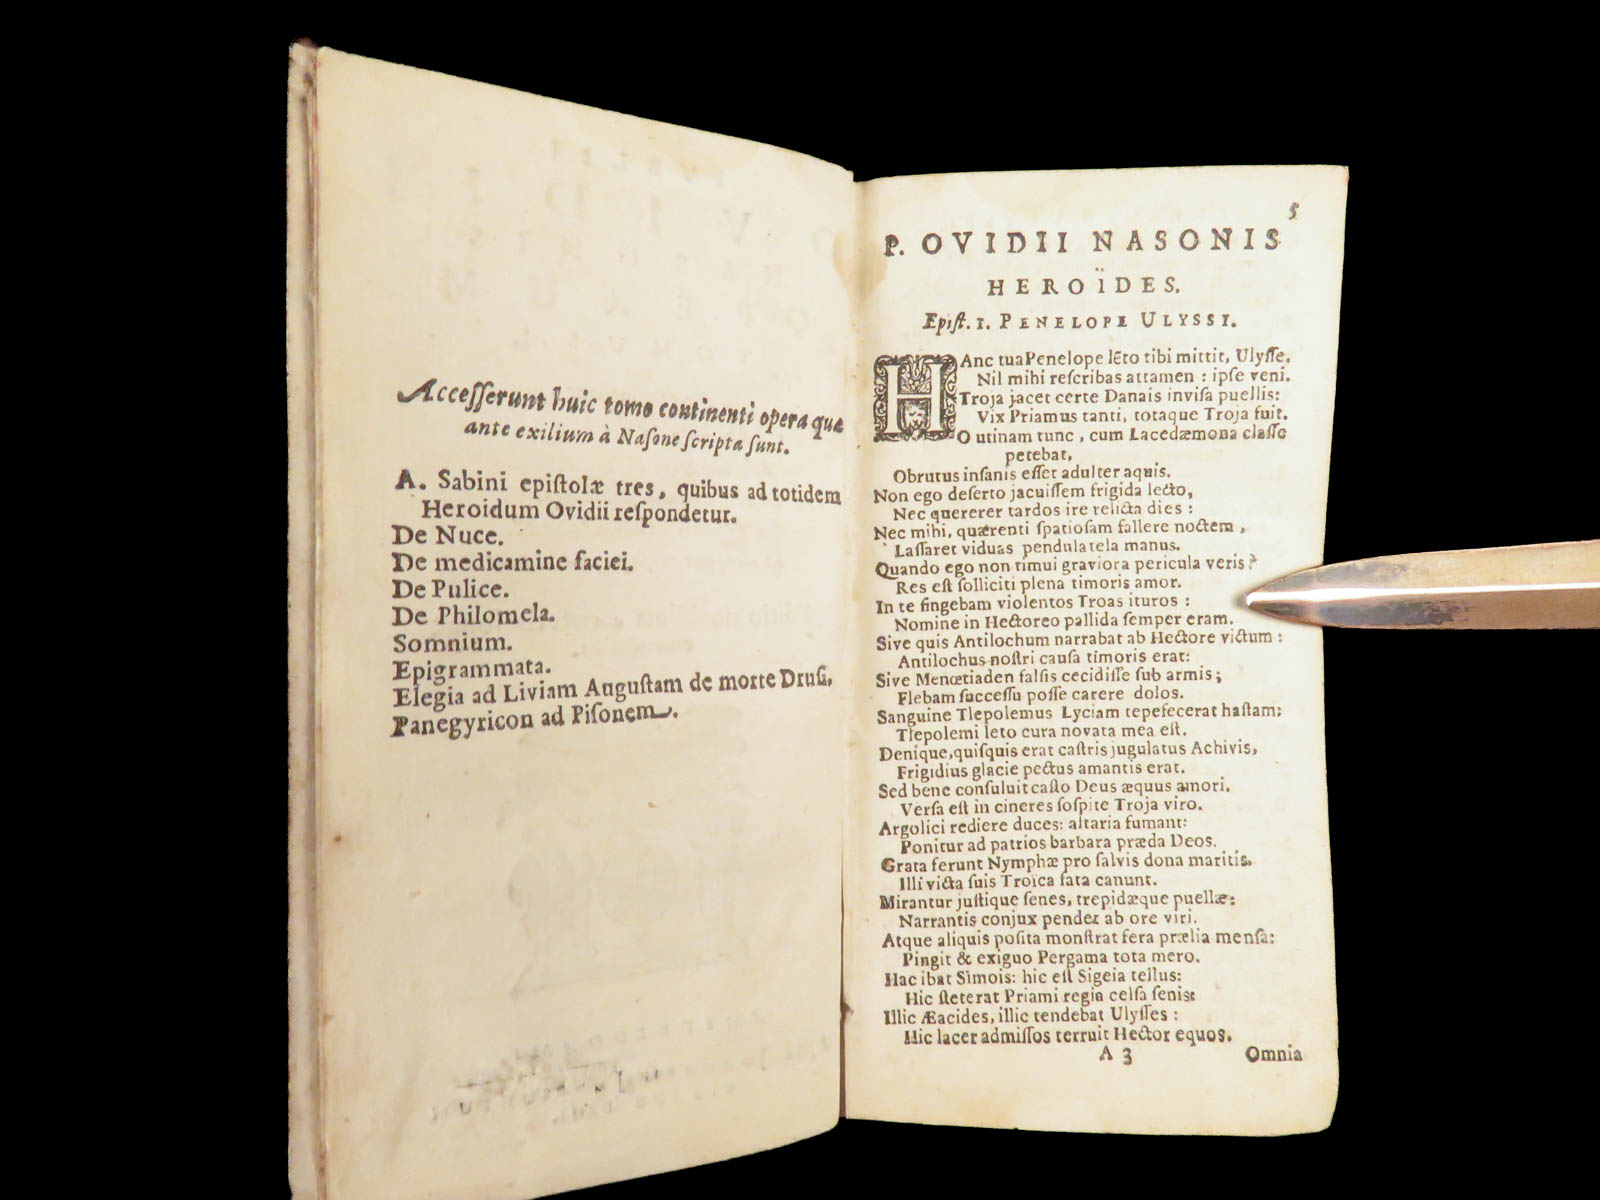 Accesserunt huic tomo continenti opera quæ
ante exilium à Nasone scripta sunt.
A. Sabini epistolæ tres, quibus ad totidem
Heroidum Ovidii respondetur.
De Nuce.
De medicamine faciei.
De Pulice.
De Philomela.
Somnium.
Epigrammata.
Elegia ad Liviam Augustam de morte Drusi.
Panegyricon ad Pisonem.
5
P. OVIDII NASONIS
HEROÏDES.
Epist. I. PENELOPE ULYSSI.
HAnc tua Penelope lẽto tibi mittit, Ulysse.
Nil mihi rescribas attamen : ipse veni.
Troja jacet certe Danais invisa puellis:
Vix Priamus tanti, totaque Troja fuit.
O utinam tunc, cum Lacedæmona classe
petebat,
Obrutus insanis esset adulter aquis.
Non ego deserto jacuissem frigida lecto,
Nec quererer tardos ire relicta dies :
Nec mihi, quærenti spatiosam fallere noctem,
Lassaret viduas pendula tela manus.
Quando ego non timui graviora pericula veris?
Res est solliciti plena timoris amor.
In te fingebam violentos Troas ituros :
Nomine in Hectoreo pallida semper eram.
Sive quis Antilochum narrabat ab Hectore victum :
Antilochus nostri causa timoris erat:
Sive Menœtiaden falsis cecidisse sub armis;
Flebam successu posse carere dolos.
Sanguine Tlepolemus Lyciam tepefecerat hastam:
Tlepolemi leto cura novata mea est.
Denique, quisquis erat castris jugulatus Achivis,
Frigidius glacie pectus amantis erat.
Sed bene consuluit casto Deus æquus amori.
Versa est in cineres sospite Troja viro.
Argolici rediere duces: altaria fumant:
Ponitur ad patrios barbara præda Deos.
Grata ferunt Nymphæ pro salvis dona maritis.
Illi victa suis Troïca fata canunt.
Mirantur justique senes, trepidæque puellæ:
Narrantis conjux pendet ab ore viri.
Atque aliquis posita monstrat fera prælia mensa:
Pingit & exiguo Pergama tota mero.
Hac ibat Simois: hic est Sigeia tellus:
Hic steterat Priami regia celsa senis:
Illic Æacides, illic tendebat Ulysses :
Hic lacer admissos terruit Hector equos.
A 3
Omnia